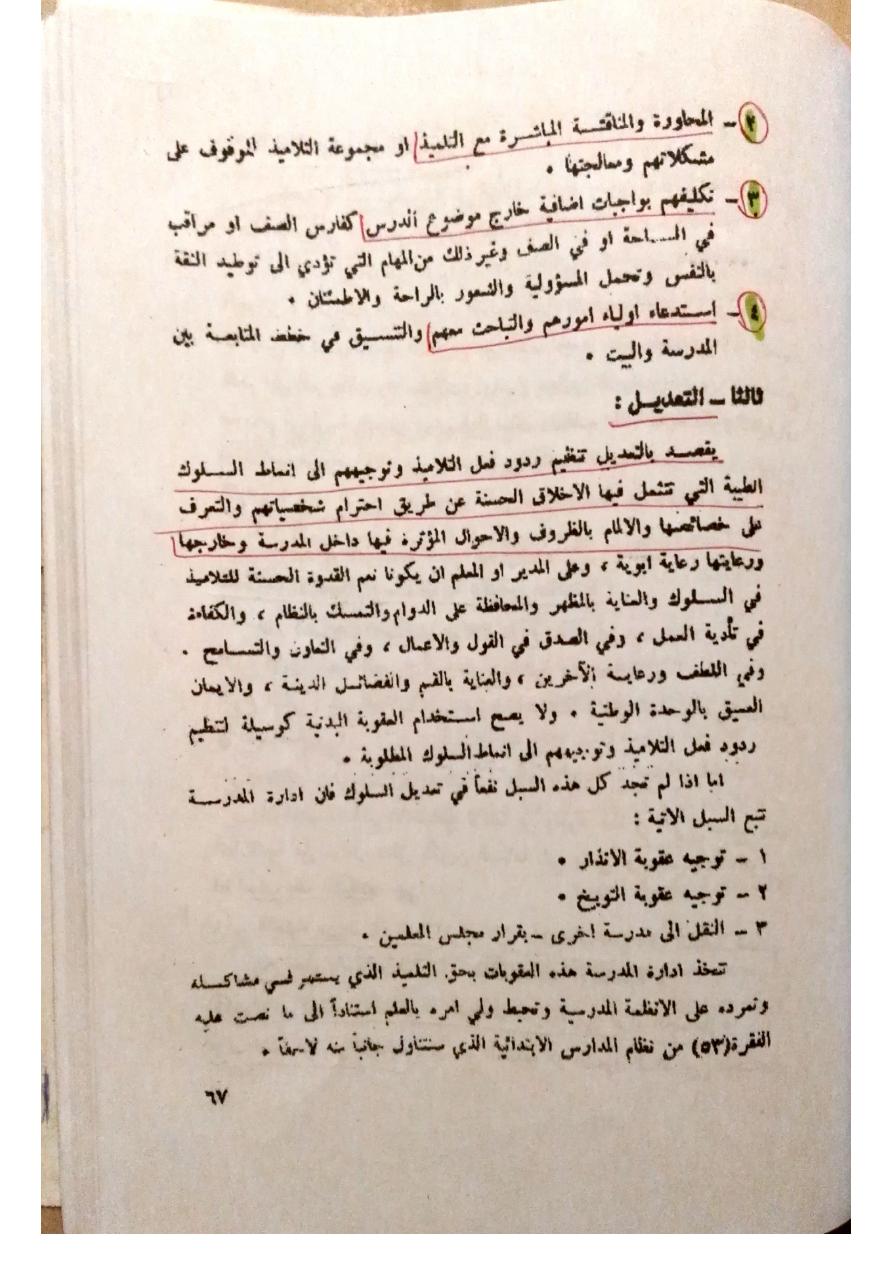 ٢ – المحاورة والمناقشة المباشرة مع التلميذ او مجموعة التلاميذ للوقوف على
مشكلاتهم ومعالجتها •
٣ – تكليفهم بواجبات اضافية خارج موضوع الدرس كفارس الصف او مراقب
في الساحة او في الصف وغير ذلك من المهام التي تؤدي الى توطيد الثقة
بالنفس وتحمل المسؤولية والشعور بالراحة والاطمئنان •
٤ – استدعاء اولياء امورهم والتباحث معهم والتنسيق في خطط المتابعة بين
المدرسة والبيت •
ثالثا – التعديل :
يقصد بالتعديل تنظيم ردود فعل التلاميذ وتوجيههم الى انماط السلوك
الطيبة التي تتمثل فيها الاخلاق الحسنة عن طريق احترام شخصياتهم والتعرف
على خصائصها والالمام بالظروف والاحوال المؤثرة فيها داخل المدرسة وخارجها
ورعايتها رعاية ابوية ، وعلى المدير او المعلم ان يكونا نعم القدوة الحسنة للتلاميذ
في السلوك والعناية بالمظهر والمحافظة على الدوام والتمسك بالنظام ، والكفاءة
في تأدية العمل ، وفي الصدق في القول والاعمال ، وفي التعاون والتسامح •
وفي اللطف ورعاية الآخرين ، والعناية بالقيم والفضائل الدينة ، والايمان
العميق بالوحدة الوطنية • ولا يصح استخدام العقوبة البدنية كوسيلة لتنظيم
ردود فعل التلاميذ وتوجيههم الى انماط السلوك المطلوبة •
اما اذا لم تجد كل هذه السبل نفعاً في تعديل السلوك فان ادارة المدرسة
تتبع السبل الاتية :
١ – توجيه عقوبة الانذار •
٢ – توجيه عقوبة التوبيخ •
٣ – النقل الى مدرسة اخرى – بقرار مجلس المعلمين •
تتخذ ادارة المدرسة هذه العقوبات بحق التلميذ الذي يستمر في مشاكسله
وتمرده على الانظمة المدرسية وتحيط ولي امره بالعلم استناداً الى ما نصت عليه
الفقرة (٥٣) من نظام المدارس الابتدائية الذي سنتناول جانباً منه لاحقاً •
٦٧